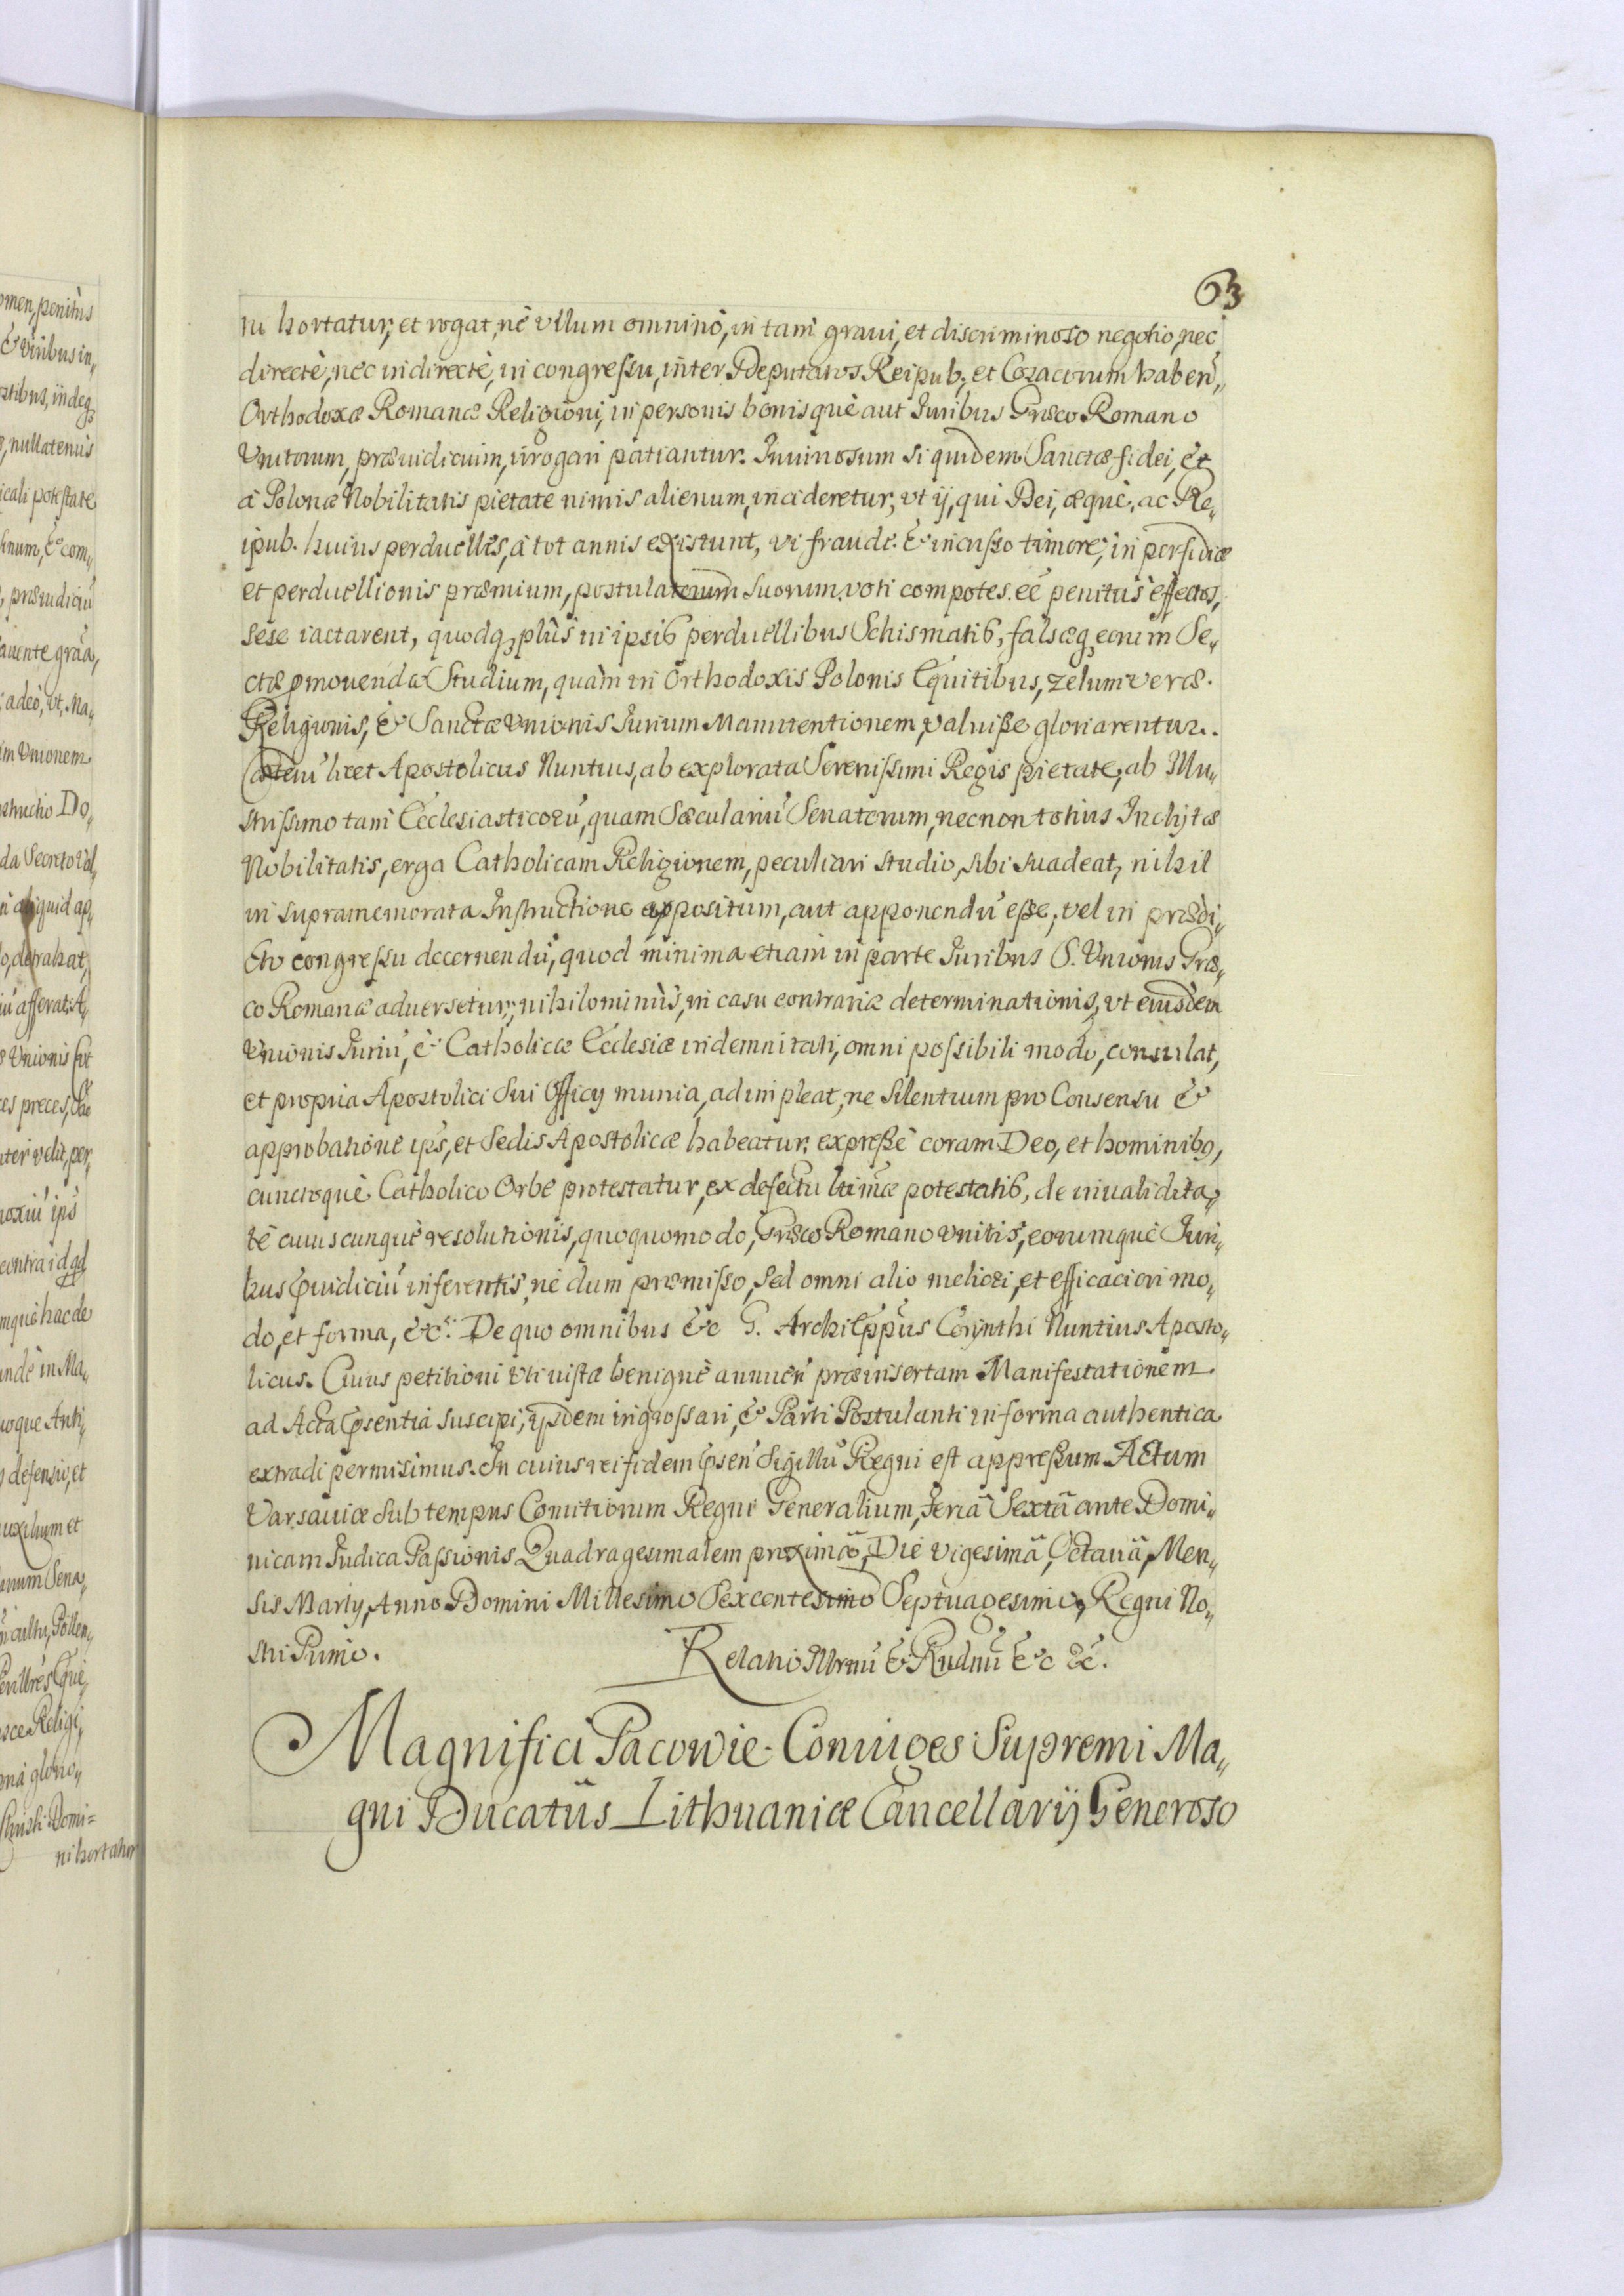 63
ni hortatur, et rogat, nè vllum omninò, in tam graui, et discriminoso negotio, nec
directè, nec indirectè, in congressu, inter Deputatos Reipub. et Cozacorum haben„
Orthodoxæ Romanæ Religioni, in personis bonisquè aut Iuribus Græco Romano
Vnitorum, præiudicium, irrogari patiantur. Iniuriosum siquidem Sanctæ fidei, et
à Polonæ Nobilitatis pietate nimis alienum, incideretur, vt ij, qui Dei, æquè, ac Re„
ipub. huius perduelles, à tot annis existunt, vi fraude. & incusso timore, in perfidiæ
et perduellionis præmium, postulatorum suorum voti compotes. eē penitus effectos,
sese iactarent, quodq; plus in ipsis perduellibus Schismatis, falsæq; eorum Se„
ctæ pmouendæ Studium, quàm in Orthodoxis Polonis Equitibus, zelum veræ.
Religionis, & Sanctæ Vnionis Iurium Manutentionem, valuisse gloriarentur.
Cæterū licet Apostolicus Nuntius, ab explorata Serenissimi Regis pietate, ab Illu„
strissimo tam Ecclesiasticorū, quam Sæculariū Senatorum, necnon totius Inclytæ
Nobilitatis, erga Catholicam Religionem, peculiari studio, sibi suadeat, nihil
in supramemorata Instructione appositum, aut apponendū esse, vel in prædi„
cto congressu decernendū, quod minima etiam in parte Iuribus S. Vnionis Græ„
co Romanæ aduersetur; nihilominùs, in casu contrariæ determinationis, vt eiusdem
Vnionis Iuriū, & Catholicæ Ecclesiæ indemnitati, omni possibili modo, consulat,
et propria Apostolici sui Officij munia, adimpleat, ne silentium pro Consensu &
approbatione ips, et Sedis Apostolicæ habeatur. expressè coram Deo, et hominibq,
cunctoquè Catholico Orbe protestatur, ex defectu ltimæ potestatis, de inualidita„
te cuiuscunquè resolutionis, quoquomodo, Græco Romano vnitis, eorumquè Iuri„
bus piudiciū inferentis, ne dum præmisso, sed omni alio meliori, et efficaciori mo„
do, et forma, &c. De quo omnibus &c G. Archieppus Corynthi Nuntius Aposto„
licus. Cuius petitioni vti iustæ benignè annuen præinsertam Manifestationem
ad Acta psentia suscipi, ijsdem ingrossari, & Parti Postulanti in forma authentica
extradi permisimus. In cuius rei fidem psen Sigillū Regni est appressum. Actum
Varsauiæ sub tempus Comitiorum Regni Generalium, feria Sexta ante Domi„
nicam Iudica Passionis Quadragesimalem proxima, Die vigesima, Octaua, Men„
sis Martij, Anno Domini Millesimo Sexcentesimo Septuagesimo, Regni No„
stri Primo.
Relatio Illrmi & Rndmi &c &c.
Magnifici Pacowie Coniuges Supremi Ma„
gni Ducatûs Lithuaniæ Cancellarij Generoso